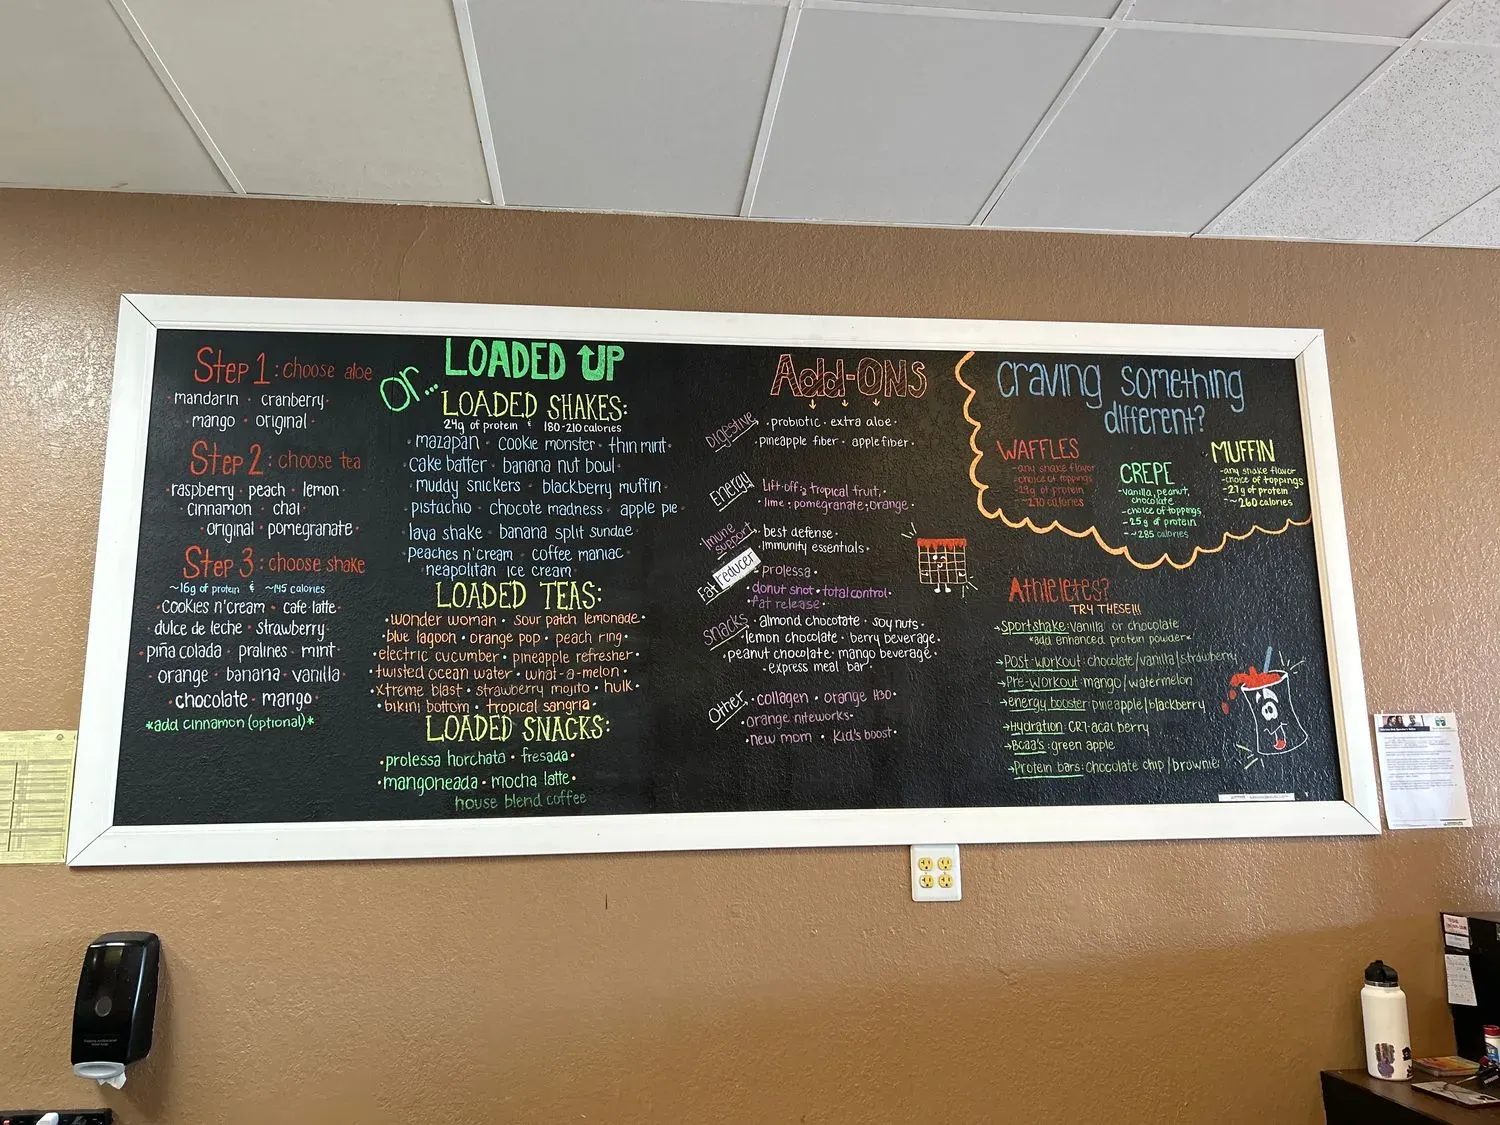 Step 1: choose aloe
mandarin · cranberry·
mango · original·
Step 2: choose tea
raspberry · peach · lemon·
cinnamon · chai
original · pomegranate·
Step 3: choose shake
~16g of protein & ~145 calories
·cookies n'cream · cafe latte·
dulce de leche · strawberry·
·piña colada · pralines · mint·
·orange · banana · vanilla·
chocolate · mango·
*add cinnamon (optional)*
or...
LOADED UP
LOADED SHAKES:
24g of protein & 180-210 calories
·mazapan · cookie monster · thin mint·
·cake batter · banana nut bowl·
·muddy snickers · blackberry muffin·
·pistachio · chocote madness · apple pie·
lava shake · banana split sundae·
peaches n'cream · coffee maniac·
·neapolitan ice cream·
LOADED TEAS:
·wonder woman · sour patch lemonade·
·blue lagoon · orange pop · peach ring·
·electric cucumber · pineapple refresher·
·twisted ocean water · what-a-melon·
·xtreme blast · strawberry mojito · hulk·
·bikini bottom · tropical sangria·
LOADED SNACKS:
·prolessa horchata · fresada·
·mangoneada · mocha latte·
house blend coffee
Add-ONS
Digestive
·probiotic · extra aloe·
·pineapple fiber · apple fiber·
Energy
Lift-off: tropical fruit,
lime, pomegranate, orange·
Imune support
·best defense·
·immunity essentials·
Fat reducer
·prolessa·
·donut shot · total control·
·fat release·
Snacks
·almond chocotate · soy nuts·
·lemon chocolate · berry beverage·
·peanut chocolate · mango beverage·
·express meal bar·
Other
·collagen · orange H30·
·orange niteworks·
·new mom · Kid's boost·
Craving something
different?
WAFFLES
-any shake flavor
-choice of toppings
-29g of protein
-~270 calories
CREPE
-vanilla, peanut,
chocolate
-choice of toppings
-25g of protein
-~285 calories
MUFFIN
-any shake flavor
-choice of toppings
-27g of protein
-~260 calories
Athletetes?
TRY THESE!!!
→Sportshake: vanilla or chocolate
*add enhanced protein powder*
→Post-workout: chocolate/vanilla/strawberry
→Pre-workout: mango/watermelon
→energy booster: pineapple/blackberry
→Hydration: CR7-acai berry
→Bcaa's: green apple
→Protein bars: chocolate chip/brownie